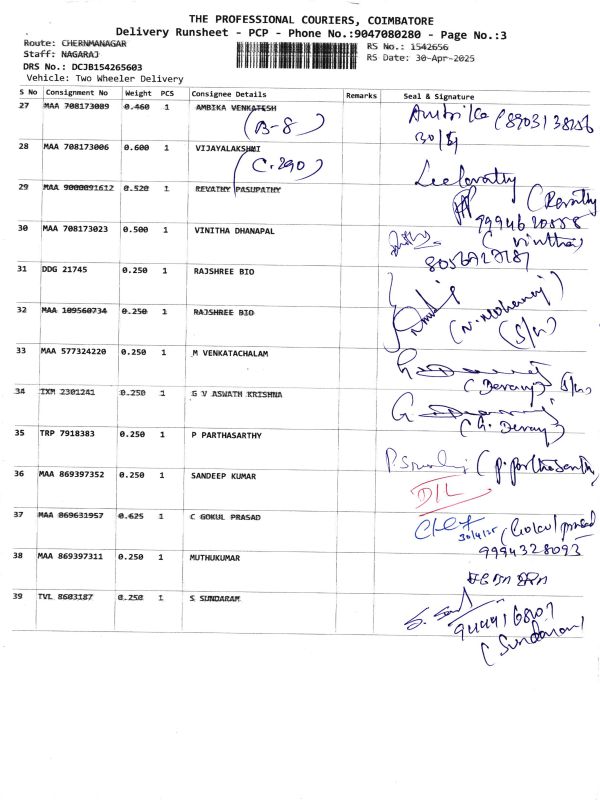 THE PROFESSIONAL COURIERS, COIMBATORE
Delivery Runsheet - PCP - Phone No.:9047080280 - Page No.:3
Route: CHERNMANAGAR
RS No.: 1542656
Staff: NAGARAJ
RS Date: 30-Apr-2025
DRS No.: DCJB154265603
Vehicle: Two Wheeler Delivery
S No Consignment No Weight PCS Consignee Details Remarks Seal & Signature
27 MAA 708173089 0.460 1 AMBIKA VENKATESH
(B-8)
28 MAA 708173006 0.600 1 VIJAYALAKSHMI
(C.290)
Leelavathy
29 MAA 9000091612 0.520 1 REVATHY PASUPATHY
(Revathy
9994620558
30 MAA 708173023 0.500 1 VINITHA DHANAPAL
(Vinitha)
31 DDG 21745 0.250 1 RAJSHREE BIO
32 MAA 109560734 0.250 1 RAJSHREE BIO
(N. Mohanraj)
(S/w)
33 MAA 577324220 0.250 1 M VENKATACHALAM
34 IXM 2301241 0.250 1 G V ASWATH KRISHNA
35 TRP 7918383 0.250 1 P PARTHASARTHY
(P. Parthasarathy
36 MAA 869397352 0.250 1 SANDEEP KUMAR
D/L
37 MAA 869631957 0.625 1 C GOKUL PRASAD
30/4/25 (Gokul prasad
9994328093
38 MAA 869397311 0.250 1 MUTHUKUMAR
39 TVL 8603187 0.250 1 S SUNDARAM
9444916807
(Sundaram)